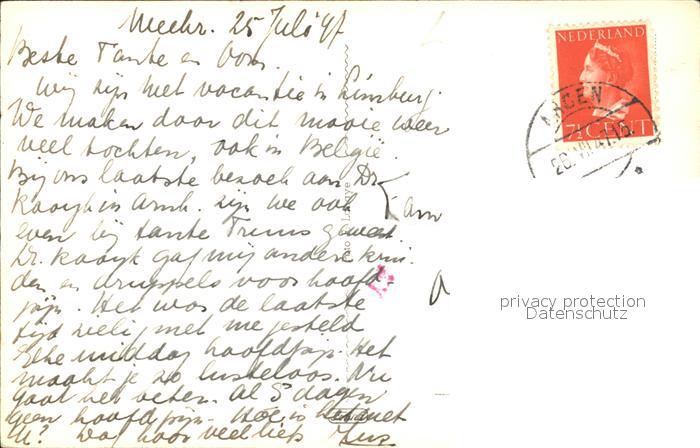 25 Juli '47
Beste Tante en Oom.
Wij zijn met vacantie in Limburg.
We maken door dit mooie weer
veel tochten, ook in België.
Bij ons laatste bezoek aan Dr.
in Arnh. zijn we ook
even bij tante Truus geweest.
Dr. gaf mij andere krui
den en druppels voor hoofd
pijn. Het was de laatste
tijd met me gesteld
Elke middag hoofdpijn. Het
maakt je zo lusteloos. Nu
gaat het beter. Al 5 dagen
geen hoofdpijn. Hoe is het met
U? Dag hoor veel liefs
NEDERLAND
7½ CENT
privacy protection
Datenschutz